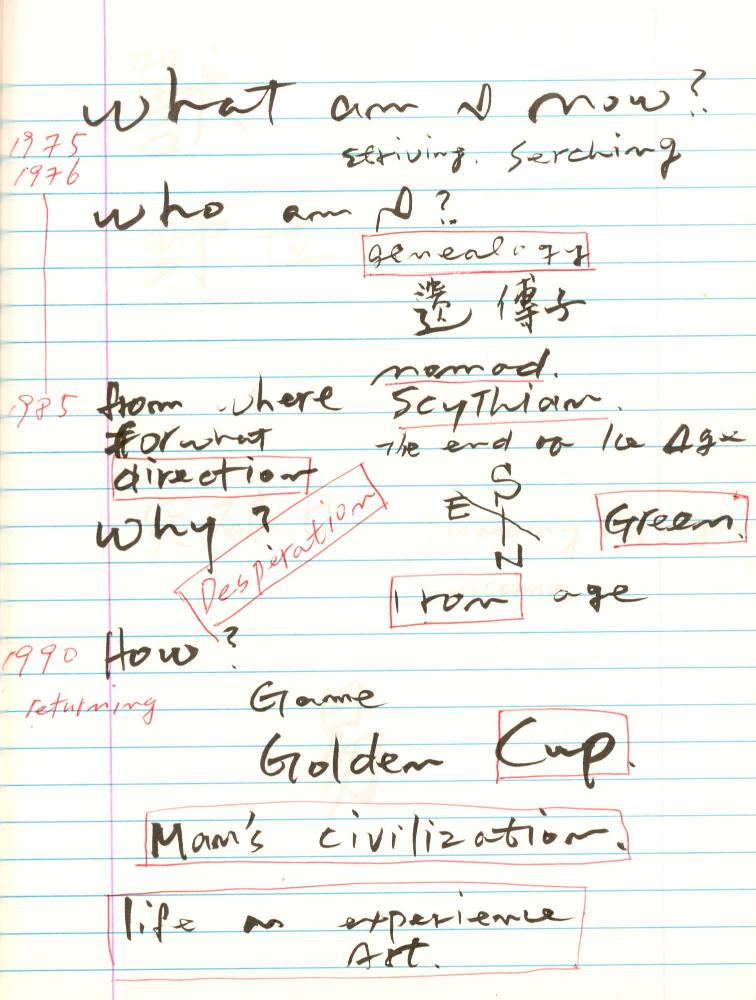 What am I now?
1975
striving. Serching
1976
who am I?
genealogy
遺傳子
nomad.
1985 from where Scythian.
for what the end of Ice Age
direction
S
E
Why? Green.
Desperation
N
Iron age
How?
1990
returning
Game
Golden Cup.
Man's civilization.
life as experience
Art.